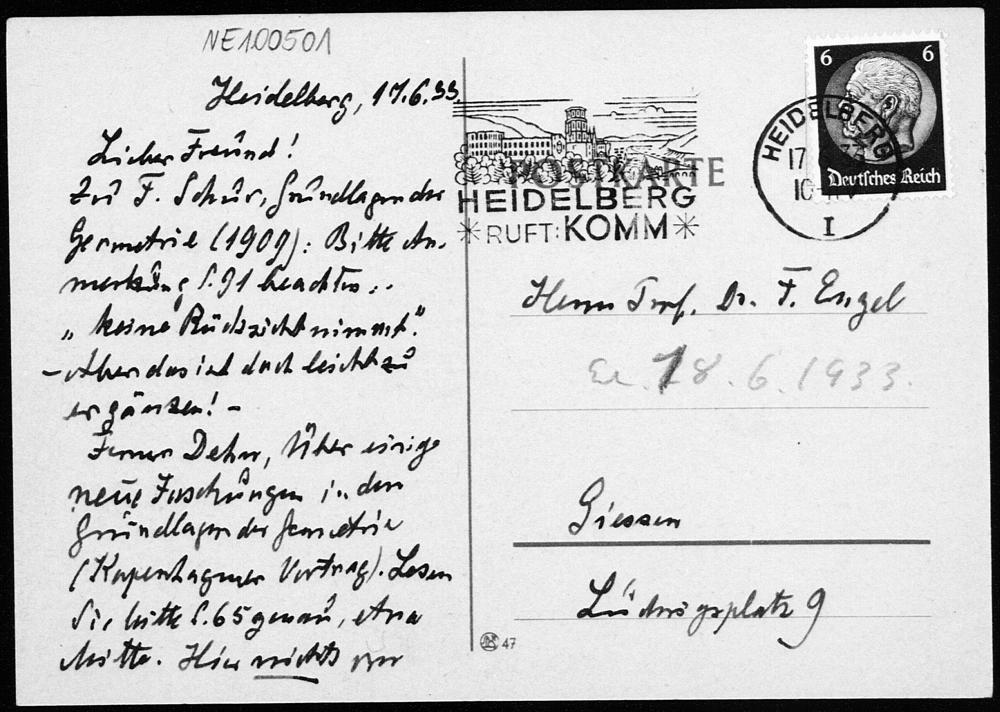 NE100501
Heidelberg, 17.6.33.
Lieber Freund!
Zu F. Schur, Grundlagen der
Geometrie (1909): Bitte An-
merkung S. 91 beachten:
„keine Rücksicht nimmt".
– Aber das ist doch leicht zu
ergänzen! –
Ferner Dehn, Über einige
neue Forschungen in den
Grundlagen der Geometrie
(Kopenhagener Vortrag). Lesen
Sie bitte S. 65 genau, etwa
Mitte. Hier nichts von
POSTKARTE
HEIDELBERG
*RUFT: KOMM*
6 6
Deutsches Reich
HEIDELBERG
17
10
I
Herrn Prof. Dr. F. Engel
18.6.1933.
Giessen
Ludwigsplatz 9
47